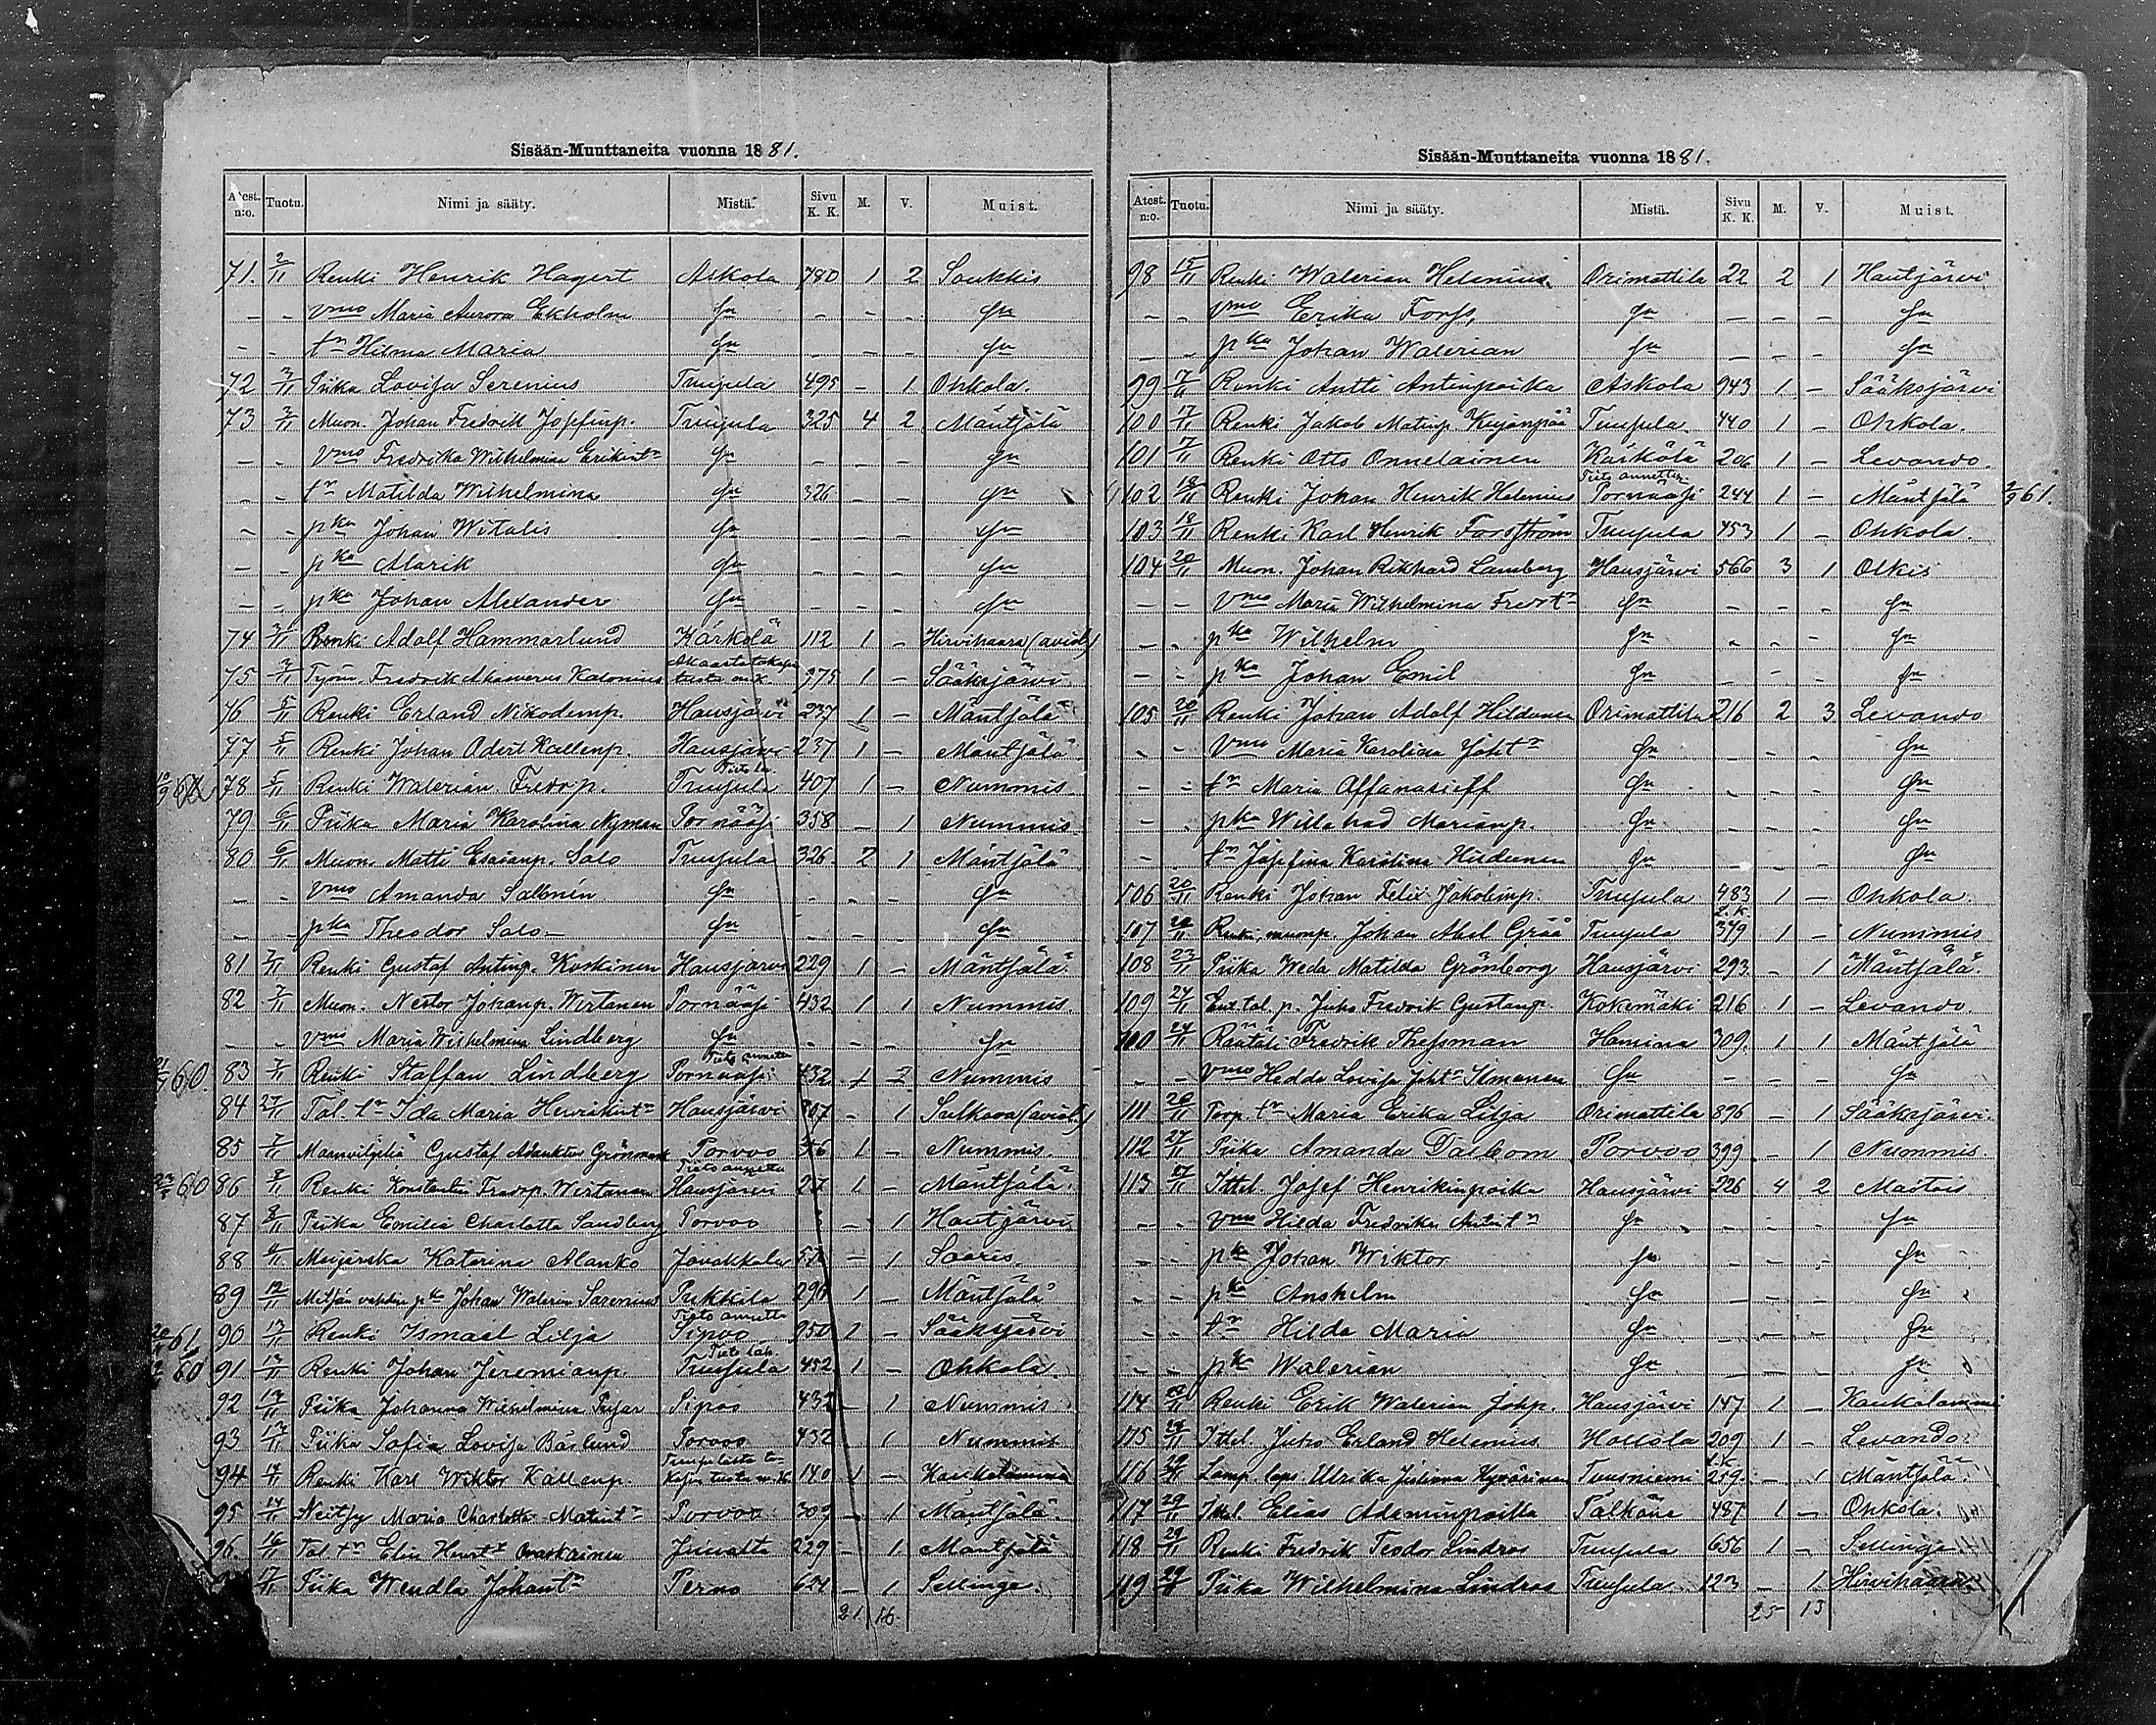 Sisään-Muuttaneita vuonna 1881.
Atest. n:o. Tuotu. Nimi ja sääty. Mistä. Sivu K. K. M. V. Muist.
71. 2/11 Renki Henrik Hagert Askola 780 1 2 Soukkis
- - Vmo Maria Aurora Ekholm Sn - - - Sn
- - tr Hilma Maria Sn - - - Sn
72 3/11 Piika Lovisa Serenius Tuusula 495 - 1 Ohkola.
73 3/11 Muon. Johan Fredrik Josefinp. Tuusula 325 4 2 Mäntsälä
- - Vmo Fredrika Wilhelmina Erikintr Sn - - - Sn
- - tr Matilda Wilhelmina Sn 326 - - Sn
- - pka Johan Witalis Sn - - - Sn
- - pka Alarik Sn - - - Sn
- - pka Johan Alexander Sn - - - Sn
74 3/11 Renki Adolf Hammarlund Kärkölä 112 1 - Hirvihaara (aviol.)
75 Työm. Fredrik Ahasverus Kalonius 975 1 - Sääksjärvi
76 5/11 Renki Erland Nikodemp. Hausjärvi 237 1 - Mäntsälä
77 5/11 Renki Johan Kallenp. Hausjärvi 237 1 - Mäntsälä
78 5/11 Renki Walerian Fredrp. Tuusula 407 1 - Nummis
79 6/11 Piika Maria Karolina Nyman Pornaasi 358 - 1 Nummis
80 6/11 Muon. Matti Esaianp. Salo Tuusula 326 2 1 Mäntsälä
- - Vmo Amanda Salonén Sn - - - Sn
- - pka Theodor Salo - Sn - - - Sn
81 7/11 Renki Gustaf Antinp. Koskinen Hausjärvi 229 1 - Mäntsälä
82 7/11 Muon. Nestor Johanp. Wirtanen Pornääsi 432 1 1 Nummis.
- - Vmo Maria Wilhelmina Lindberg Sn - - - Sn
60. 83 7/11 Renki Staffan Lindberg Tieto annettu Pornaasi 432 1 2 Nummis
84 Tal. tr Ida Maria Henrikintr Hausjärvi 1 Sulkava (aviol.)
85 7/11 Maanviljeliä Gustaf Grönmark Porvoo 1 - Nummis.
60 86 8/11 Renki Konstantin Fredrp. Wirtanen Tieto annettu Hausjärvi 1 - Mäntsälä
87 8/11 Piika Emilia Charlotta Sandberg Porvoo - 1 Hautjärvi
88 Meijärska Katarina Alanko Janakkala - 1 Saaris.
89 12/11 Johan Walerin Sarenius Pukkila 290 1 - Mäntsälä
61 90 13/11 Renki Ismael Lilja Tieto annettu Sipoo 1 - Sääksjärvi
60 91 Renki Johan Jeremianp. Tuusula 452 1 - Ohkola
92 13/11 Piika Johanna Wilhelmina Sipoo 432 - 1 Nummis
93 13/11 Piika Sofia Lovisa Bäslund Porvoo 432 1 Nummis
94 14/11 Renki Karl Wiktor Kallenp. 140 1 - Kaukalammi
95 14/11 Neitsy Maria Charlotta Matintr Porvoo 309 1 Mäntsälä
96. 16/11 Tal. tr Elin Henrtr 229 - 1 Mäntsälä
17/11 Piika Wendla Johantr Perno 624 - 1 Sellinge.
21 16
Sisään-Muuttaneita vuonna 1881.
Atest. n:o. Tuotu. Nimi ja sääty. Mistä. Sivu K. K. M. V. Muist.
98 15/11 Renki Walerian Helenius Orimattila 22 2 1 Hautjärvi
- - Vmo Erika Forss, Sn - - - Sn
- - pka Johan Walerian Sn - - - Sn
99 Renki Antti Antinpoika Askola 943 1 - Sääksjärvi
100 17/11 Renki Jakob Matinp. Kujänpää Tuusula 440 1 - Ohkola.
101 7/11 Renki Otto Onnelainen Kärkölä 206 1 - Levando.
102 18/11 Renki Johan Henrik Helenius Tieto annettu Pornaasi 244 1 - Mäntsälä 61.
103 18/11 Renki Karl Henrik Forsström Tuusula 453 1 - Ohkola.
104 20/11 Muon. Johan Rikhard Lamberg Hausjärvi 566 3 1 Olkis
- - Vmo Maria Wilhelmina Fredtr Sn - - - Sn
- - pka Wilhelm Sn - - - Sn
- - pka Johan Emil Sn - - - Sn
105 20/11 Renki Johan Adolf Hildonen Orimattila 216 2 3 Levando
- - Vmo Maria Karolina Johtr Sn - - Sn
- - tr Maria Affanasieff Sn - - - Sn
- - pka Willehad Marianp. Sn - - - Sn
- tr Josefina Karolina Hildonen Sn - - - Sn
106 20/11 Renki Johan Felix Jakobinp. Tuusula 483 1 - Ohkola.
107 20/11 Renki, muonp. Johan Abel Grää Tuusula 379 1 - Nummis
108 23/11 Piika Weda Matilda Grönborg Hausjärvi 293 - 1 Mäntsälä.
109 24/11 Ent. tal. p. Juho Fredrik Gustafp. Kokemäki 216 1 - Levando.
24/11 Räätäli Fredrik Thessman Hamina 309. 1 1 Mäntsälä
- - Vmo Hedda Lovisa Johtr Ilmonen Sn - - - Sn
111 Torp. tr Maria Erika Lilja Orimattila 896 - 1 Sääksjärvi.
112 27/11 Piika Amanda Dalbom Porvoo 399 - 1 Nummis.
113 Ittel. Josef Henrikinpoika Hausjärvi 226 4 2 Maotois
- - Vmo Hilda Fredrika Antintr Sn - - - Sn
- - pka Johan Wiktor Sn - - - Sn
- - pka Anshelm Sn - - - Sn
- - tr Hilda Maria Sn - - - Sn
pka Walerian Sn - - - Sn
114 Renki Erik Walerian Johp. Hausjärvi 147 1 - Kaukalammi
115 Ittel. Juho Erland Helenius Hollola 209 1 - Levando
116 Lamp. leski Ulrika Juliana Hyvärinen Tuusniemi 259. - 1 Mäntsälä
117 29/11 Ittel. Elias Ademinpoika Pälkäne 487 1 - Ohkola.
118 29/11 Renki Fredrik Teodor Lindros Tuusula 656 1 - Sellinge
119 Piika Wilhelmina Lindros Tuusula 123 - 1 Hirvihaara
25 13